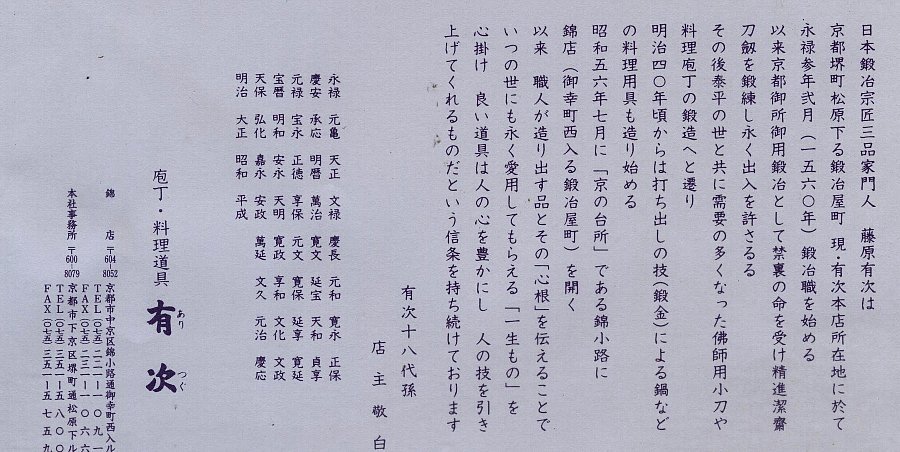 日本鍛冶宗匠三品家門人　藤原有次は
京都堺町松原下る鍛冶屋町　現・有次本店所在地に於て
永禄参年弐月（一五六〇年）鍛冶職を始める
以来京都御所御用鍛冶として禁裏の命を受け精進潔齋
刀劔を鍛練し永く出入を許さるる
その後泰平の世と共に需要の多くなった佛師用小刀や
料理庖丁の鍛造へと遷り
明治四〇年頃からは打ち出しの技（鍛金）による鍋など
の料理用具も造り始める
昭和五六年七月に「京の台所」である錦小路に
錦店（御幸町西入る鍛冶屋町）を開く
以来　職人が造り出す品とその「心根」を伝えることで
いつの世にも永く愛用してもらえる「一生もの」を
心掛け　良い道具は人の心を豊かにし　人の技を引き
上げてくれるものだという信条を持ち続けております
有次十八代孫
店主　敬白
永禄　元亀　天正　文禄　慶長　元和　寛永　正保
慶安　承応　明暦　萬治　寛文　延宝　天和　貞享
元禄　宝永　正徳　享保　元文　寛保　延享　寛延
宝暦　明和　安永　天明　寛政　享和　文化　文政
天保　弘化　嘉永　安政　萬延　文久　元治　慶応
明治　大正　昭和　平成
庖丁・料理道具　有次
あり　つぐ
錦店　〒604－8052　京都市中京区錦小路通御幸町西入ル
TEL（〇七五）二二一－一〇九一
FAX（〇七五）二三一－一〇六六
本社事務所　〒600－8079　京都市下京区堺町通松原下ル
TEL（〇七五）三五一－五八〇〇
FAX（〇七五）三五一－五七五九